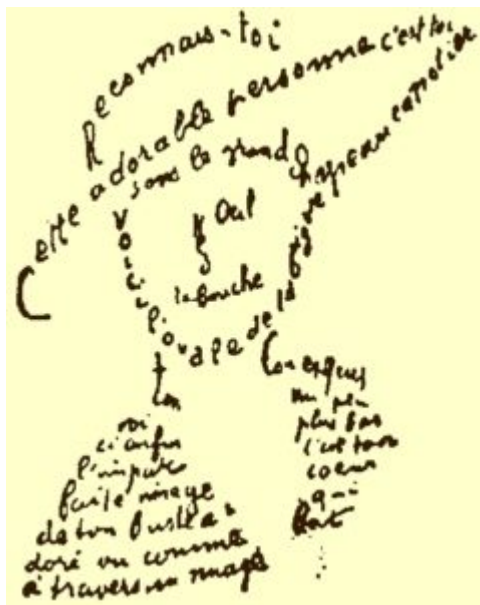 Reconnais-toi
Cette adorable personne c'est toi
sous le grand chapeau canotier
Oeil
la bouche
voici l'ovale de ta figure
ton
cou exquis
voi
ci enfin
l'impar
faite image
de ton buste a
doré vu comme
à travers un nuage
un peu
plus bas
c'est ton
coeur
qui
bat